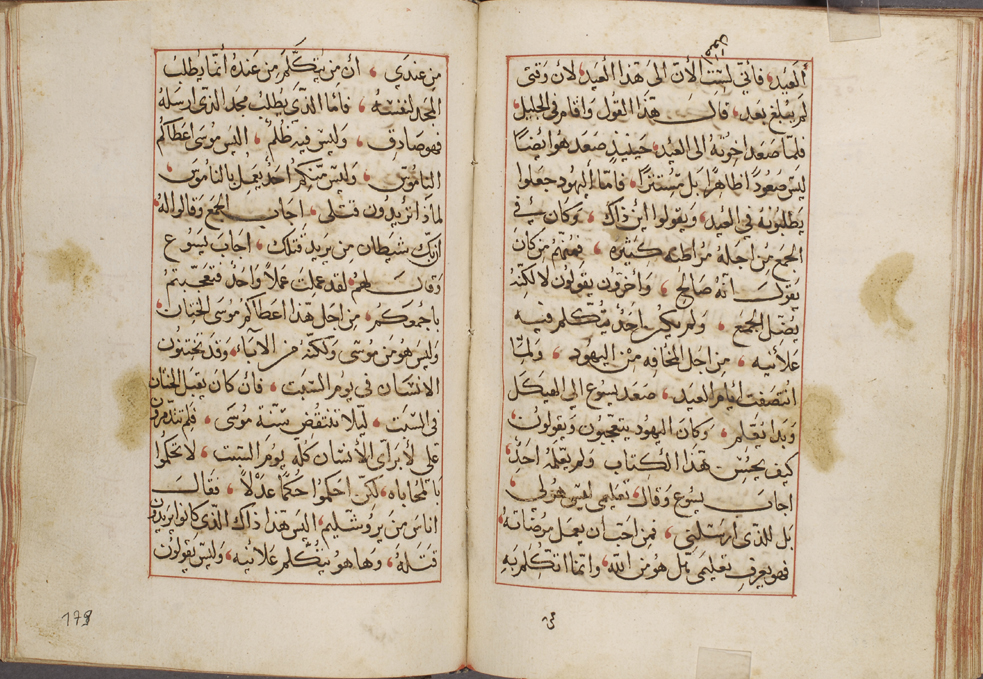 العيد، فأني لست الآن الى هذا العيد، لان وقتى
لم يبلغ بعد، قال هذا القول واقام فى الجليل
فلما صعد اخوته الى العيد، حينيذ صعد هو ايضًا
ليس صعودًا ظاهرًا بل مستترًا، فامّا اليهود جعلوا
يطلبونه فى العيد، ويقولوا اين ذاك، وكان في
الجمع من اجله مراطمه كثيره، فمنهم من كان
يقول انه صالح، واخرون يقولون لا لكنه
يضل الجمع، ولم يكن احد يتكلم فيه
علانيه، من اجل المخافه من اليهود، ولمّا
انتصفت ايام العيد، صعد يسوع الى الهيكل
وبدا يعلم، وكان اليهود يتعجبون ويقولون
كيف يحسن هذا الكتاب ولم يعلمه احد
اجاب يسوع وقال، تعليمى ليس هو لى
بل للذى ارسلنى، فمن احب ان يعمل مرضاته
فهو يعرف تعليمى، هل هو من الله، وانما اتكلم به
من عندي، ان من يتكلم من عنده انما يطلب
المجد لنفسه، فامّا الذي يطلب مجد الذى ارسله
فهو صادق، وليس فيه ظلم، اليس موسى اعطاكم
الناموس، وليس منكم احد يعمل بالناموس
لماذا تريدون قتلى، اجاب الجمع وقالوا له
ان بك شيطان من يريد قتلك، اجاب يسوع
وقال لهم لقد عملت عملاً واحدً فتعجبتم
باجمعكم، من اجل هذا اعطاكم موسى الختان
وليس هو من موسى ولكنه من الآباء، وقد تختنون
الانسان فى يوم السبت، فأن كان يقبل الختان
فى السبت، ليلا تنتقض سنة موسى، فلم تتذمرون
على لابراى الانسان كله يوم السبت، لا تحكموا
بالمحاباه، لكن احكموا حكمًا عدلاً، فقال
اناس من يروشليم، اليس هذا ذاك الذى كانوا يريدون
قتله، وها هو يتكلم علانيه، وليس يقولون
178